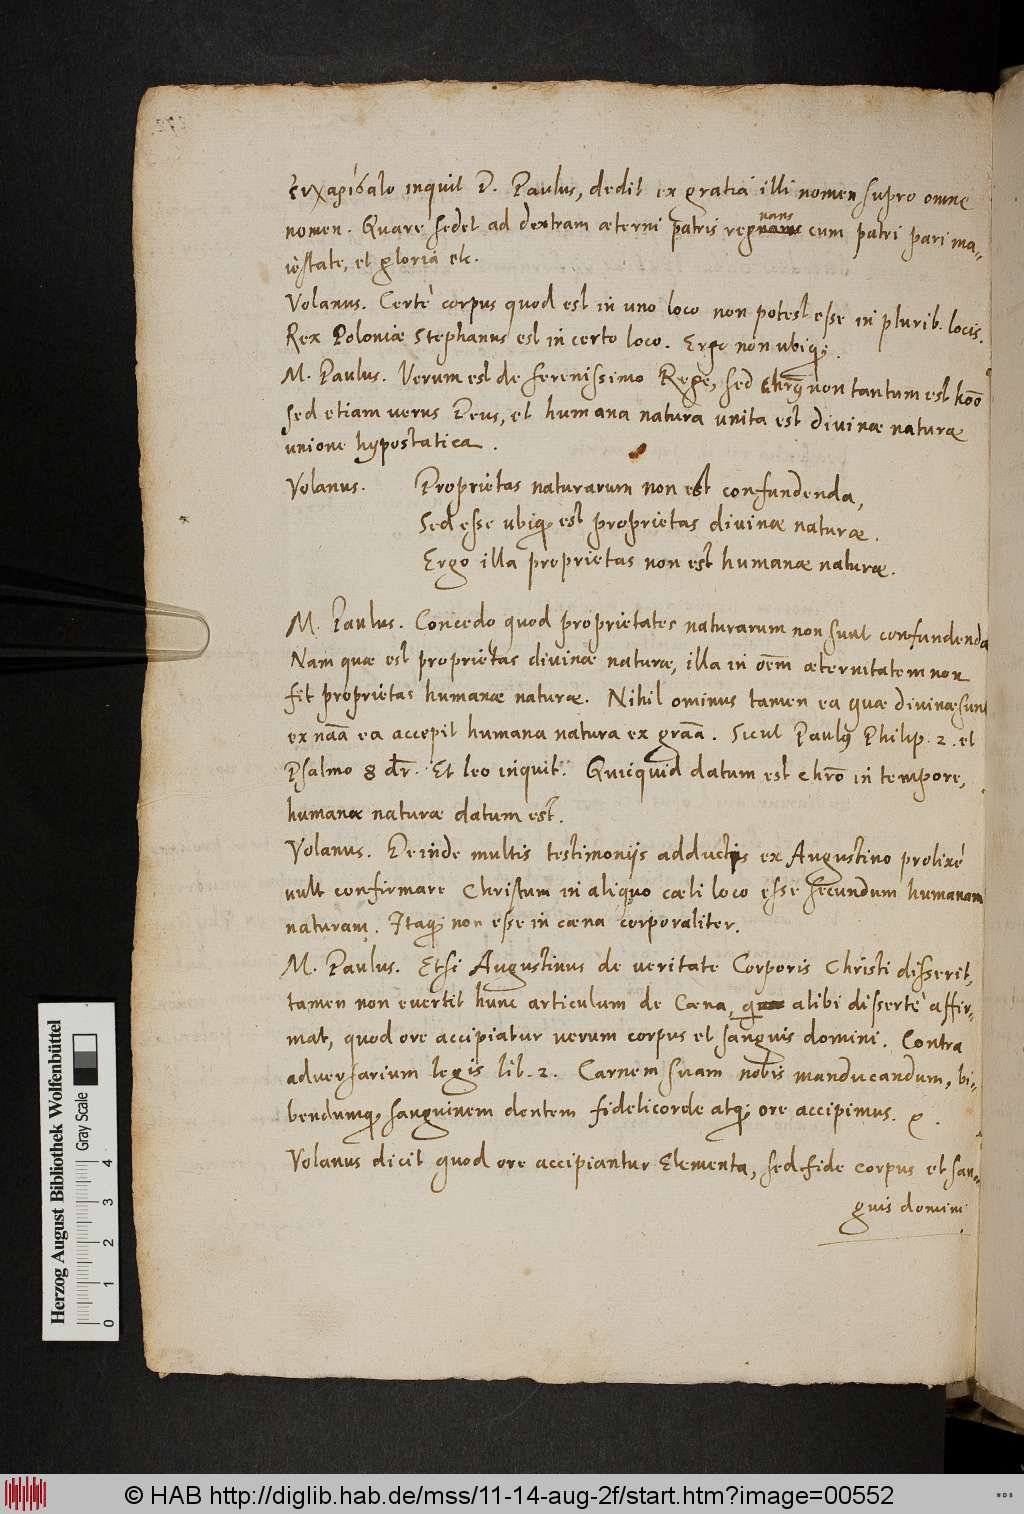 ἐχαρίσατο inquit D. Paulus, dedit ex gratia illi nomen supro omne
nomen. Quare sedet ad dextram æterni patris regnans cum patri pari ma-
iestate, et gloria etc.
Volanus. Certè corpus quod est in uno loco non potest esse in plurib. locis.
Rex Poloniæ Stephanus est in certo loco. Ergo non ubiq;.
M. Paulus. Verum est de serenissimo Rege, sed Chrūs non tantum est hōō
sed etiam verus Deus, et humana natura unita est divinæ naturæ
unione hypostatica.
Volanus. Proprietas naturarum non est confundenda,
Sed esse ubiq; est proprietas divinæ naturæ.
Ergo illa proprietas non est humanæ naturæ.
M. Paulus. Concedo quod proprietates naturarum non sunt confundenda
Nam quæ est proprietas divinæ naturæ, illa in oēm æternitatem non
fit proprietas humanæ naturæ. Nihil ominus tamen ea quæ divinæ sunt
ex nāā ea accepit humana natura ex grāā. Sicut Paulus Philip. 2. et
Psalmo 8 dr. Et leo inquit. Quicquid datum est Chrō in tempore,
humanæ naturæ datum est.
Volanus. Deinde multis testimonijs adductis ex Augustino prolixé
vult confirmare Christum in aliquo cæli loco esse secundum humanam
naturam. Itaq; non esse in cæna corporaliter.
M. Paulus. Etsi Augustinus de veritate Corporis Christi disserit,
tamen non evertit hunc articulum de Cæna, alibi disserte affir-
mat, quod ore accipiatur verum corpus et sanguis domini. Contra
adversarium legis lib. 2. Carnem suam nobis manducandum, bi-
bendumq; sanguinem dentem fideli corde atq; ore accipimus.
Volanus dicit quod ore accipiantur Elementa, sed fide corpus et san-
guis domini
Herzog August Bibliothek Wolfenbüttel
Gray Scale
0 1 2 3 4
© HAB http://diglib.hab.de/mss/11-14-aug-2f/start.htm?image=00552